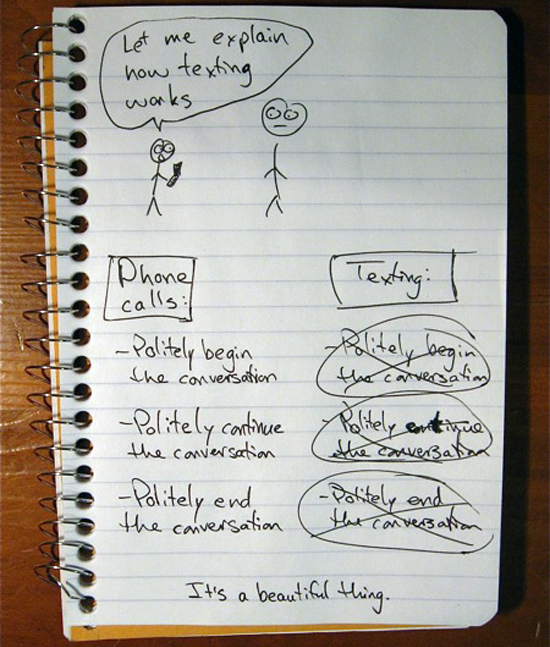 Let me explain
how texting
works
Phone
calls:
-Politely begin
the conversation
-Politely continue
the conversation
-Politely end
the conversation
Texting:
-Politely begin
the conversation
Politely continue
the conversation
-Politely end
the conversation
It's a beautiful thing.